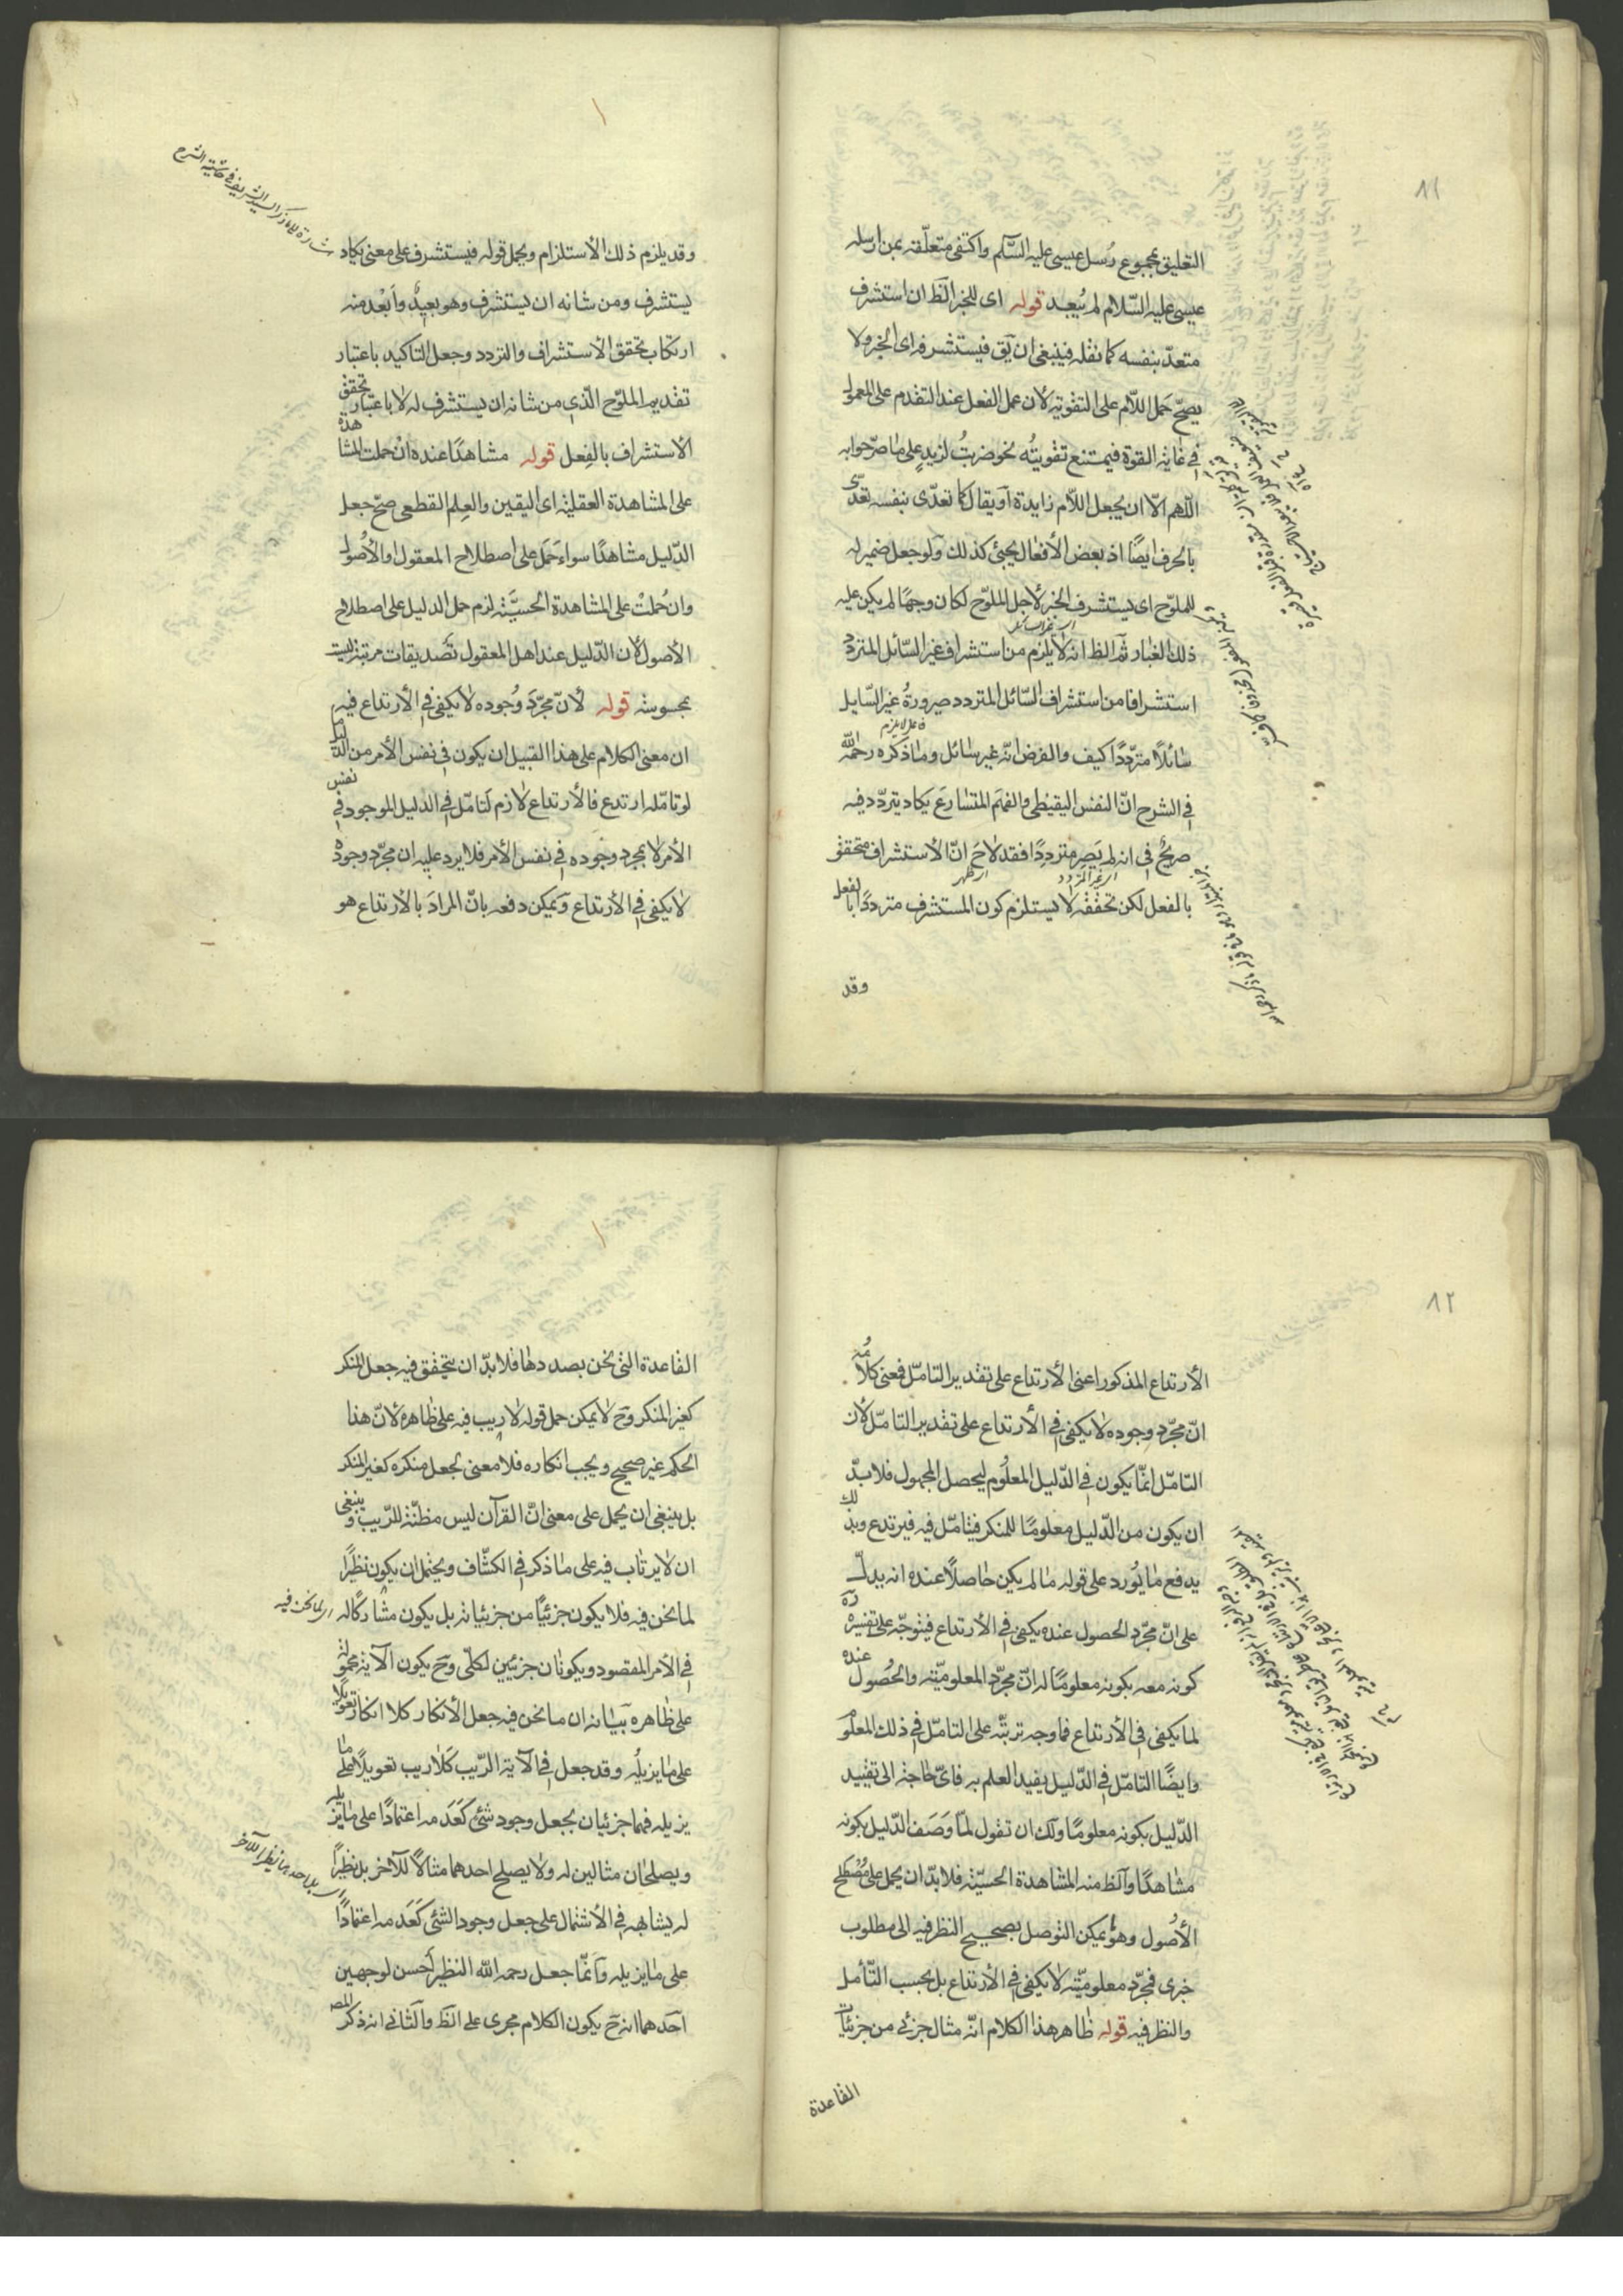 ٨١
التعليق بمجموع رُسل عيسى عليه السّلم واكتفى متعلّقه بمن ارسله
عيسى عليه السّلام لم يُبعد قوله اى للخبر الظ ان استشرف
متعدّ بنفسه كما نقله فينبغى ان يق فيستشرفه اى الخبر ولا
يصحّ حَمل اللّام على التقوية لأن عمل الفعل عند التقدم على المعمول
فى غاية القوة فيمتنع تقويتُه نحو ضربتُ لزيدٍ على ما صرّحوا به
اللّهم الّا ان يجعل اللّام زايدة او يقال كما تعدّى بنفسه تعدّى
بالحرف ايضًا اذ بعض الأفعال يجيئ كذلك ولو جعل ضمير له
للملوّح اى يستشرف الخبر لأجل الملوّح لكان وجهًا لم يكن عليه
ذلك الغبار ثم الظ انه لا يلزم من استشراف غير السّائل المتردد
استشرافا من استشراف السّائل المتردد صيرورةُ غير السّايل
فاعل لا يلزم
سائلًا متردّدًا كيف والفرض انّه غير سائل وما ذكره رحمه الله
فى الشرح انّ النفس اليقيظى والفهَم المتسارعَ يكاد يتردّد فيه
صريحٌ فى انه لم يَصِر مترددًا فقد لاحَ انّ الأستشراف متحقق
بالفعل لكن تحققه لا يستلزم كون المستشرف مترددًا بالفعل
وقد
اشارة لما ذكر السيد الشريف فى حاشية الشرح
وقد يلزم ذلك الأستلزام ويحمل قوله فيستشرف على معنى يكاد
يستشرف ومن شانه ان يستشرف وهو بعيدٌ وأبعْد منه
ارتكاب تحقق الأستشراف والتردد وجعل التاكيد باعتبار
تقديم الملوّح الّذى من شانه ان يستشرف له لا باعتبار تحقق
الأستشراف بالفِعل قوله مشاهدًا عنده انْ حملت المشاهدة
على المشاهدة العقلية اى اليقين والعِلم القطعى صحّ جعل
الدّليل مشاهدًا سواء حَمَل على اصطلاح المعقول او الأُصُول
وان حُملتْ على المشاهدة الحسيَّة لزم حمل الدليل على اصطلاح
الأصول لأن الدّليل عند اهل المعقول تصديقات مرتبة ليست
بمحسوسة قوله لأنّ مجّردَ وُجوده لا يكفى فى الأرتداع فيه
ان معنى الكلام على هذا القبيل ان يكون فى نفس الأمر من الدّليل ما
لو تامّله ارتدع فالأرتداع لازم لَتامّل فى الدليل الموجود فى نفس
الأمر لا بمجرد وجوده فى نفس الأمر فلا يرد عليه ان مجرّد وجوده
لا يكفى فى الأرتداع ويمكن دفعه بانّ المرادَ بالأرتداع هو
٨٢
الأرتداع المذكور اعنى الأرتداع على تقدير التامّل فمعنى كلامُه
انّ مجرّد وجوده لا يكفى فى الأرتداع على تقدير التامّل لأن
التامّل انمّا يكون فى الدّليل المعلُوم ليحصل المجهول فلا بدّ
ان يكون من الدّليل معلومًا للمنكر فيتامّل فيه فيرتدع وبذلك
يدفع ما يُورد على قوله ما لم يكن حاصلًا عنده انه يدلّ
على انّ مجرّد الحصول عنده يكفى فى الأرتداع فيتوجّه على تفسيره
كونه معه بكونه معلومًا له انّ مجرّد المعلوميّة والحُصول عنده
لما يكفى فى الأرتداع فما وجه ترتبّه على التامّل فى ذلك المعلُوم
وايضًا التامّل فى الدّليل يفيد العلم به فاىّ حاجة الى تقييد
الدّليل بكونه معلومًا ولك ان تقول لمّا وَصَف الدّليل بكونه
مشاهدًا والظ منه المشاهدة الحسيّة فلا بدّ ان يحمل على مُصْطلح
الأُصُول وهو ما يمكن التوصل بصحيح النظر فيه الى مطلوب
خبرى فمجّرد معلوميّته لا يكفى فى الأرتداع بل بحسب التّأمل
والنظر فيه قوله ظاهر هذا الكلام انّه مثال جزئى من جزئيّات
القاعدة
القاعدة التى نحن بصددها فلا بدّ ان يتحقق فيه جعل المنكر
كغير المنكر وح لا يمكن حمل قوله لا ريب فيه على ظاهره لأنّ هذا
الحكم غير صحيح ويجب انكاره فلا معنى بجعل منكره كغير المنكر
بل ينبغى ان يحمل على معنى انّ القرآن ليس مظنّة للرّيب وينبغى
ان لا يرتاب فيه على ما ذكر فى الكشّاف ويحتمل ان يكون نظيرًا
لما نحن فيه فلا يكون جزئيًا من جزئياته بل يكون مشاركًا له
اى لما نحن فيه
فى الأمر المقصود ويكونان جزئيين لكلّى وح يكون الآية محمولة
على ظاهره بيَانه ان ما نحن فيه جعل الأنكار كلا انكار تعويلًا
على ما يزيلُه وقد جعل فى الآية الرّيب كَلا ريب تعويلًا على ما
يزيله فهما جزئيان بجعل وجود شئ كَعَدَمه اعتمادًا على ما يزيله
ويصلحان مثالين له ولا يصلح احدهما مثالًا للآخر بل نظيرًا
اى بل احدهما نظير الآخر
له يشابهه فى الأشتمال على جعل وجود الشئ كَعَدَمه اعتمادًا
على ما يزيله وانّما جعل رحمه الله النظير أحسن لوجهين
احدهما انه ح يكون الكلام مجرى على الظ والثّانى انه ذكر المص